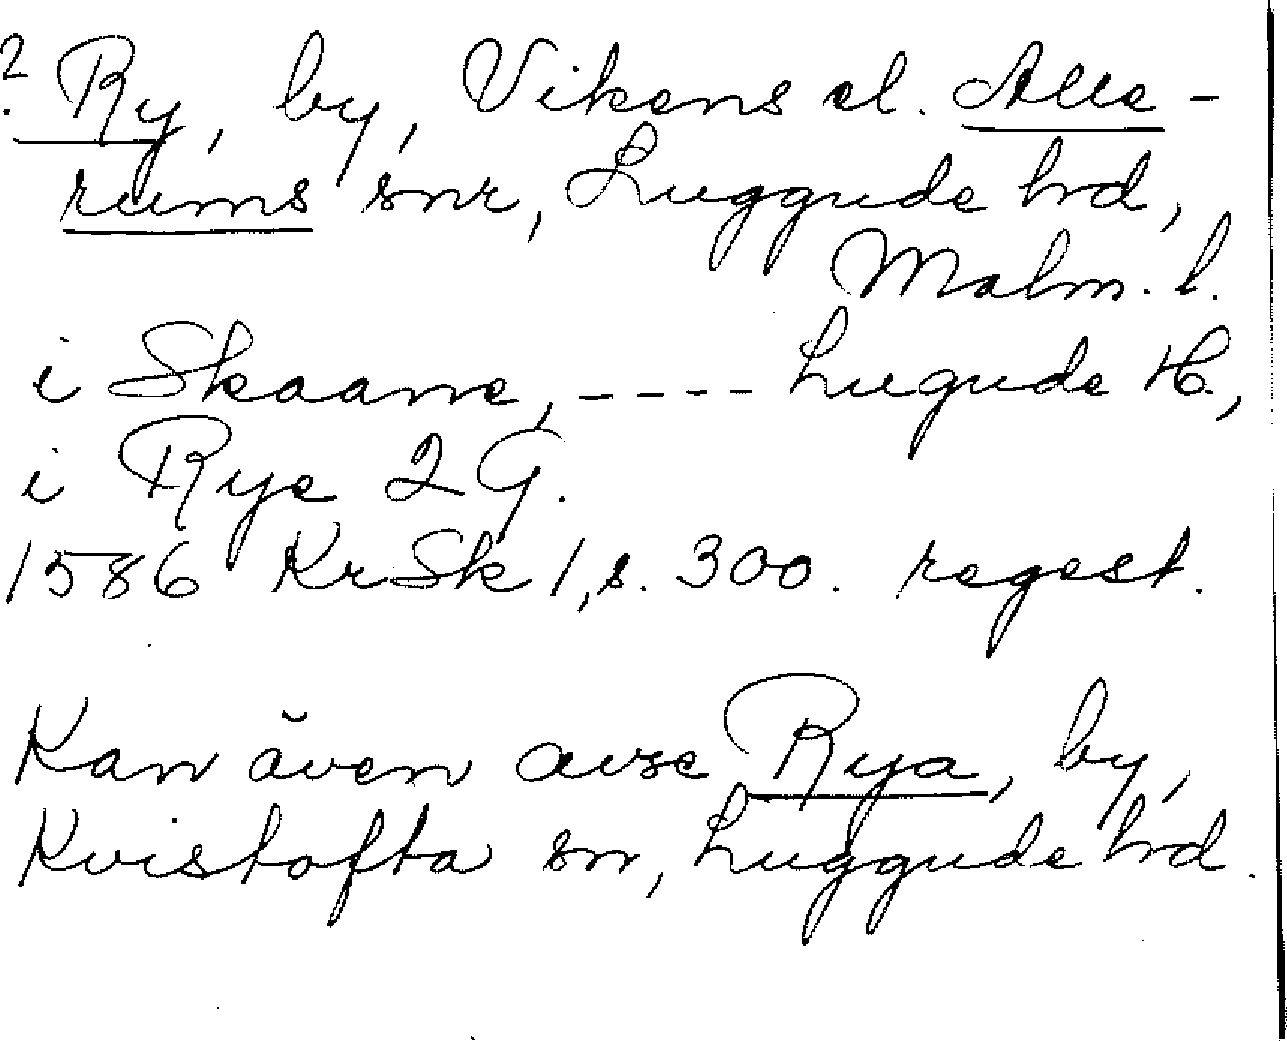 ? Ry, by, Vikens el. Alle-
rums snr, Luggude hd,
Malm. l.
i Skaane, ---- Lugude H.,
i Rye 2 G.
1586 KrSk 1, s. 300. regest.
Kan även avse Rya, by,
Kvistofta sn, Luggude hd.